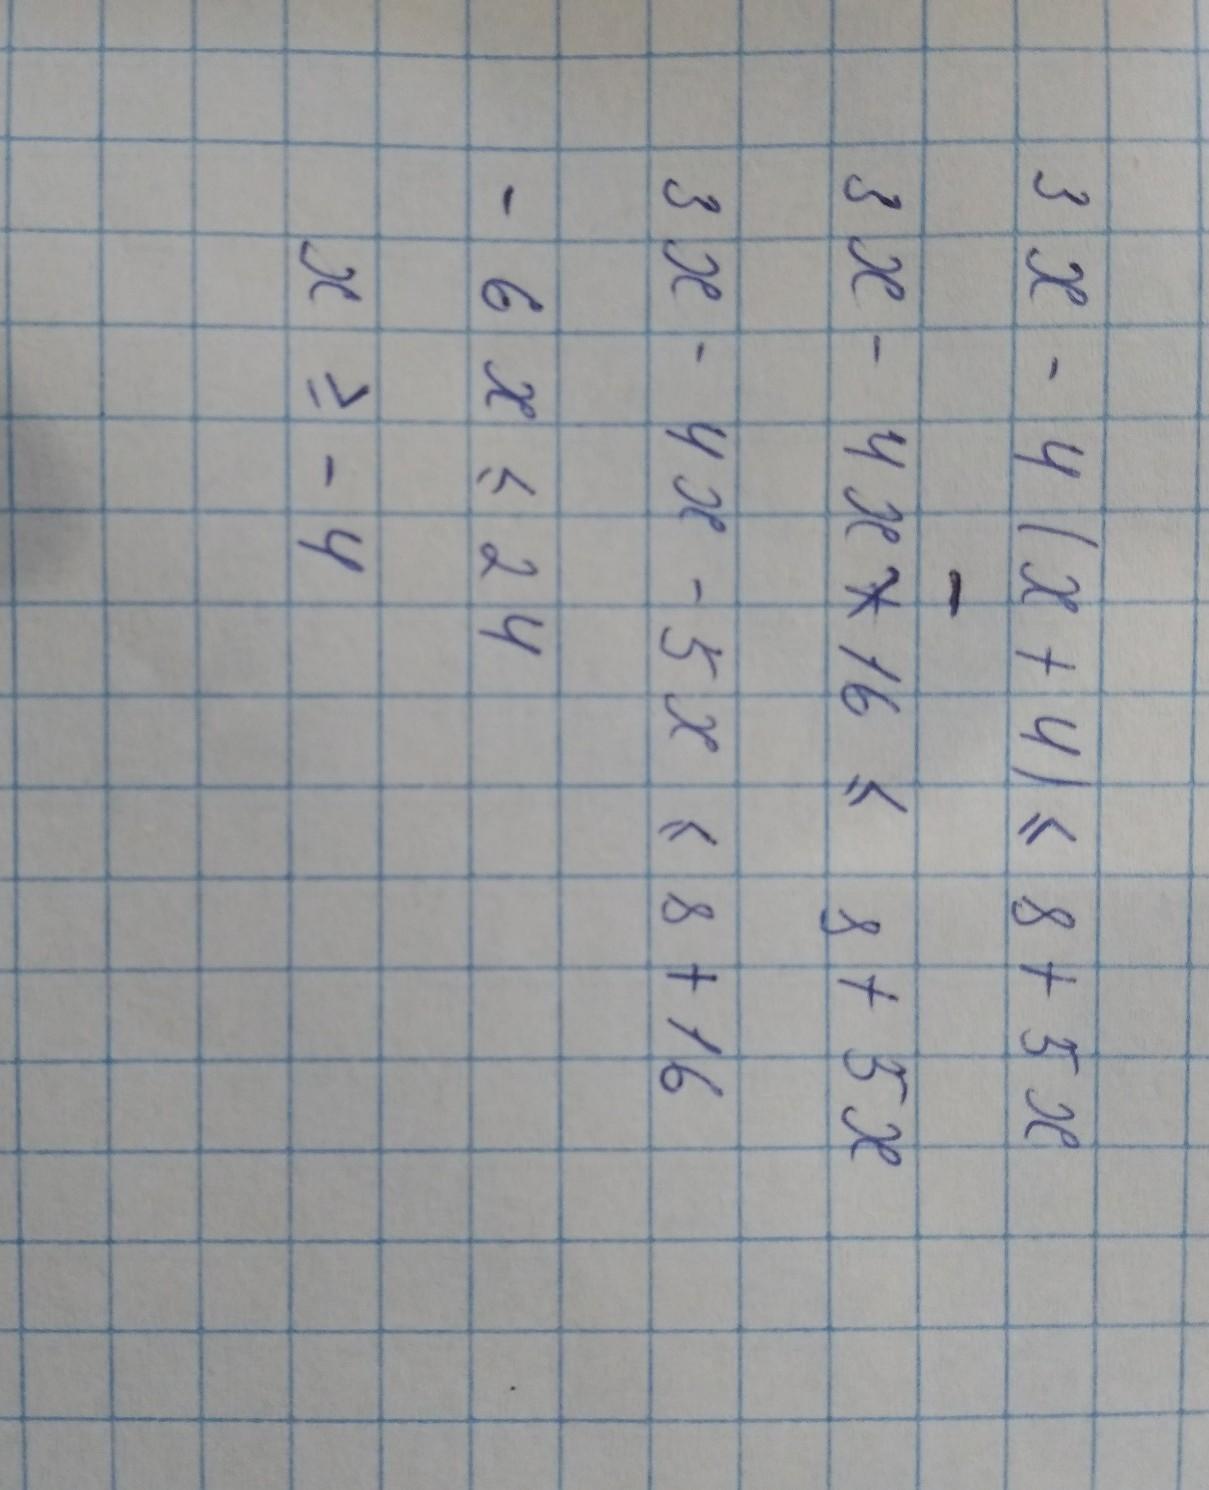 3x - 4(x + 4) ≤ 8 + 5x
-
3x - 4x 16 ≤ 8 + 5x
3x - 4x - 5x ≤ 8 + 16
- 6x ≤ 24
x ≥ - 4